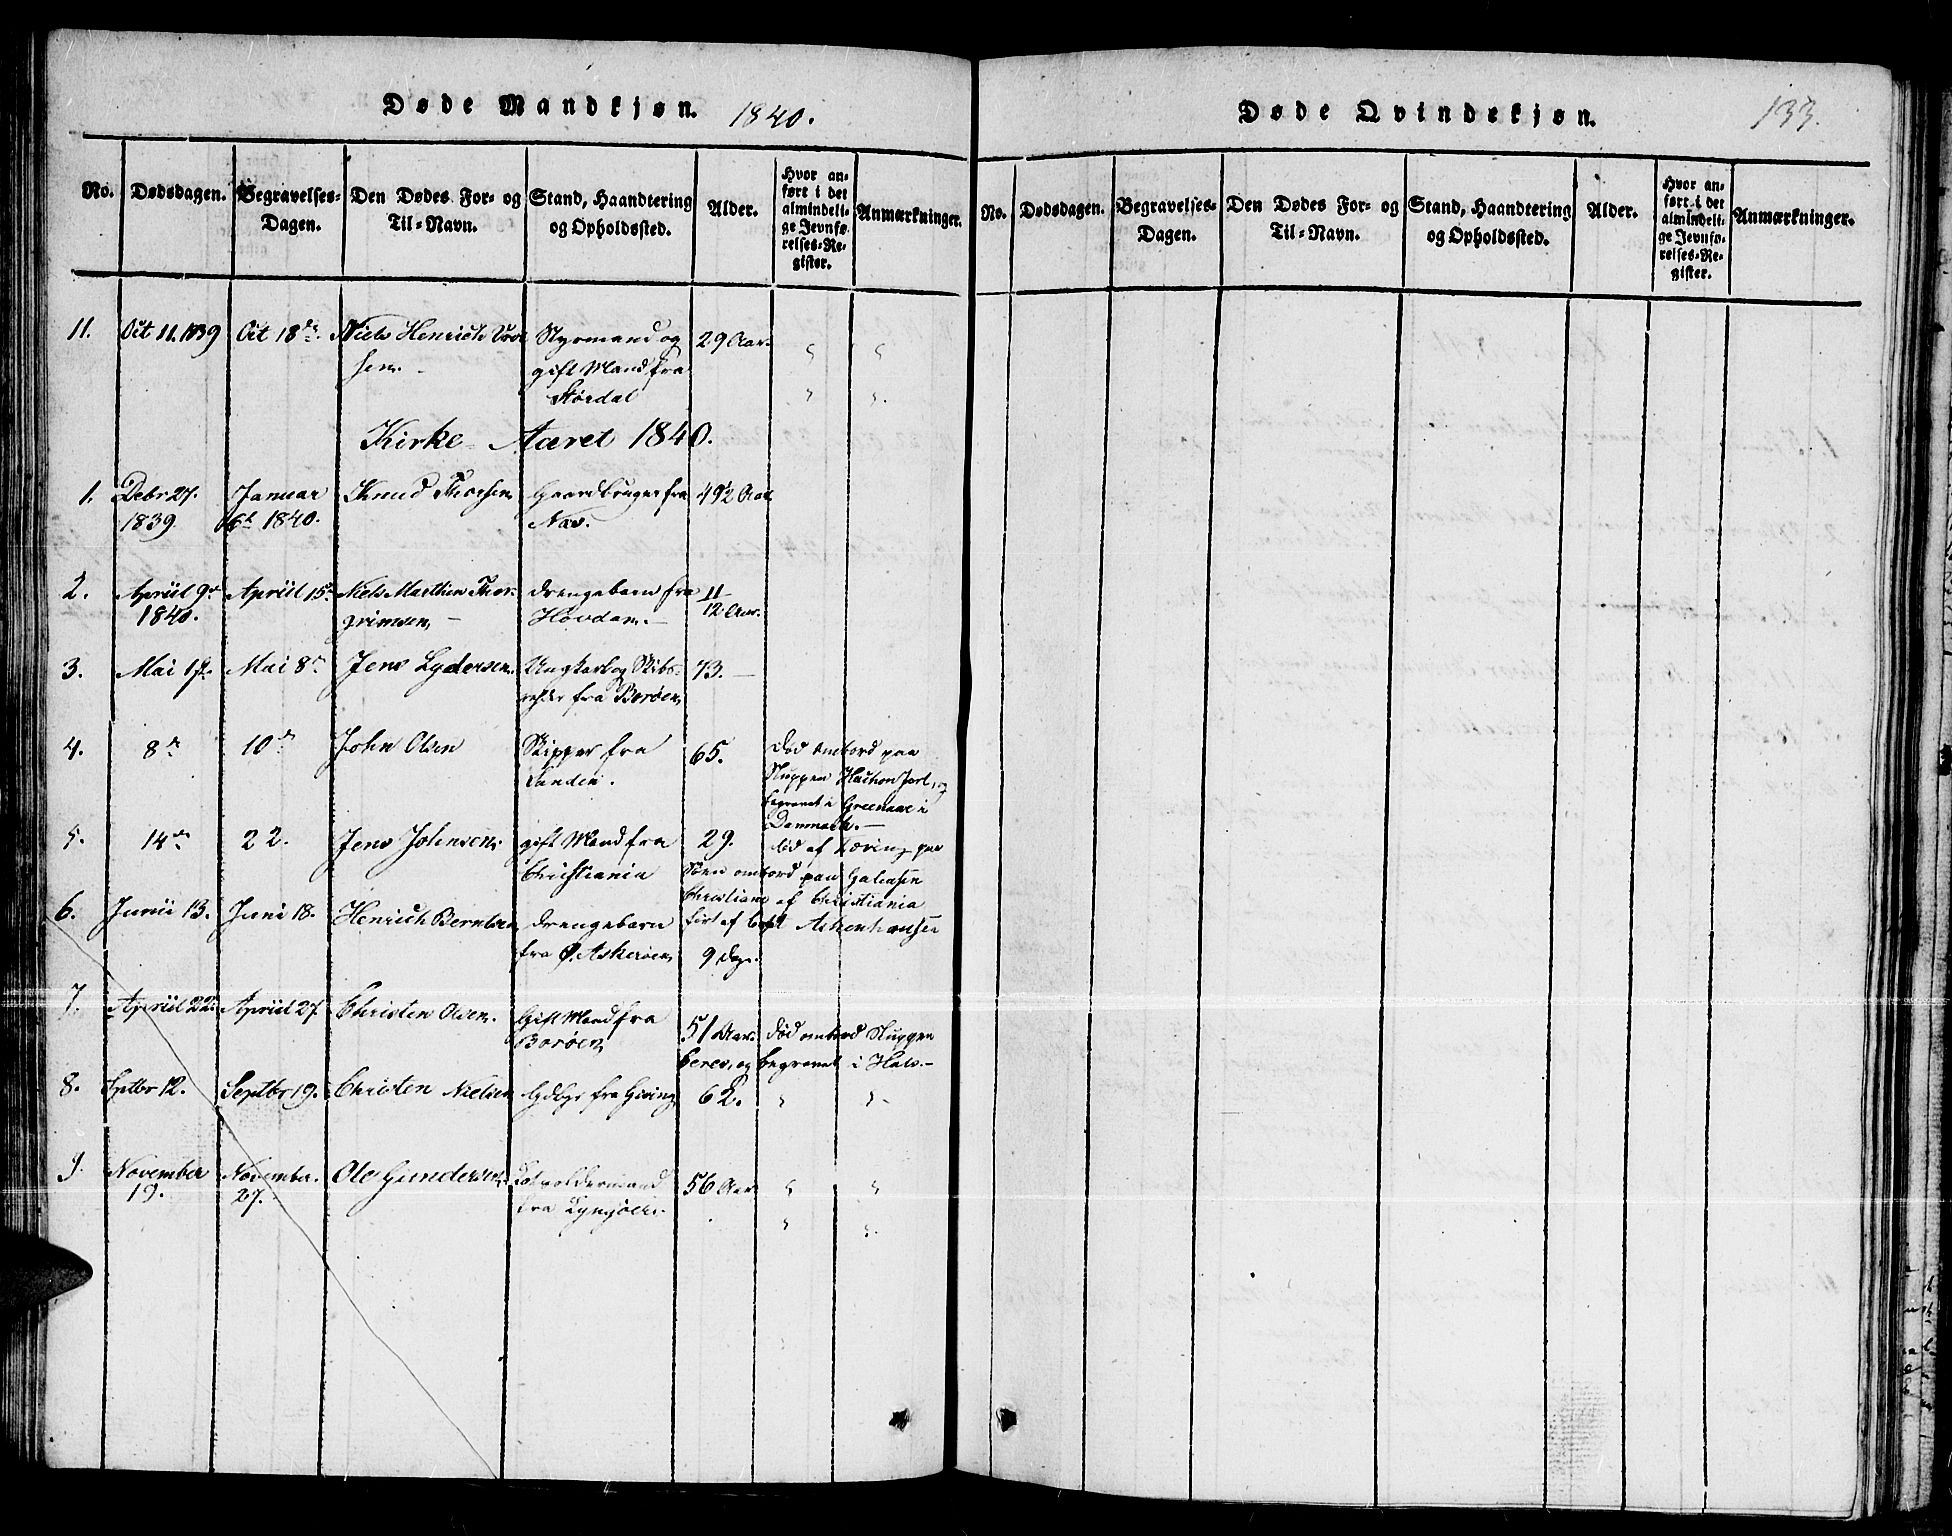 Døde Mandkjøn. 1840.
No. Dødsdagen. Begravelses-Dagen. Den Dødes For- og Til-Navn. Stand, Haandtering og Opholdssted. Alder. Hvor anført i det almindelige Jevnførelses-Register. Anmærkninger.
11. Oct 11. 1839 Oct 18de Niels Henrich
sen. Styrmand og gift Mand fra Størdal 29 Aar. " "
" "
Kirke-Aaret 1840.
1. Debr 27. 1839. Januar 6t 1840. Knud Thorsen Gaardbruger fra Næs. 49½ Aar
2. Apriil 9de 1840. Apriil 15de Niels Marthin Thorgrimsen, Drengebarn fra Hovdan. 11/12 Aar.
3. Mai 1ste Mai 8de Jens Lydersen. Ungkarl og Skibsreder fra Borøen, 73.
4. 8de 10de John Olsen Skipper fra Sanden. 65. Død ombord paa
Sluppen Hachon Jarl, og
begravet i Greenaae i
Danmark.
5. 14de 22. Jens Johnsen. gift Mand fra Christiania 29. død af paa
Søen ombord paa Galeasen
Christiane af Christiania
ført af Capt Askenhausen
6. Junii 13. Juni 18. Henrich Berntsen Drengebarn fra Ø. Askerøen, 9 Dage.
7. Apriil 22. Apriil 27 Christen Olsen. Gift Mand fra Borøen, 51 Aar. Død ombord Sluppen
Ceres, og begravet i Hals.
8. Septbr 12. Septbr 19. Christen Nielsen Gdbgr fra Giving, 62. " "
9. November 19. November. 27. Ole Gundersen. fra Lyngøer. 56 Aar " "
" "
Døde Qvindekjøn. 133.
No. Dødsdagen. Begravelses-Dagen. Den Dødes For- og Til-Navn. Stand, Haandtering og Opholdssted. Alder. Hvor anført i det almindelige Jevnførelses-Register. Anmærkninger.